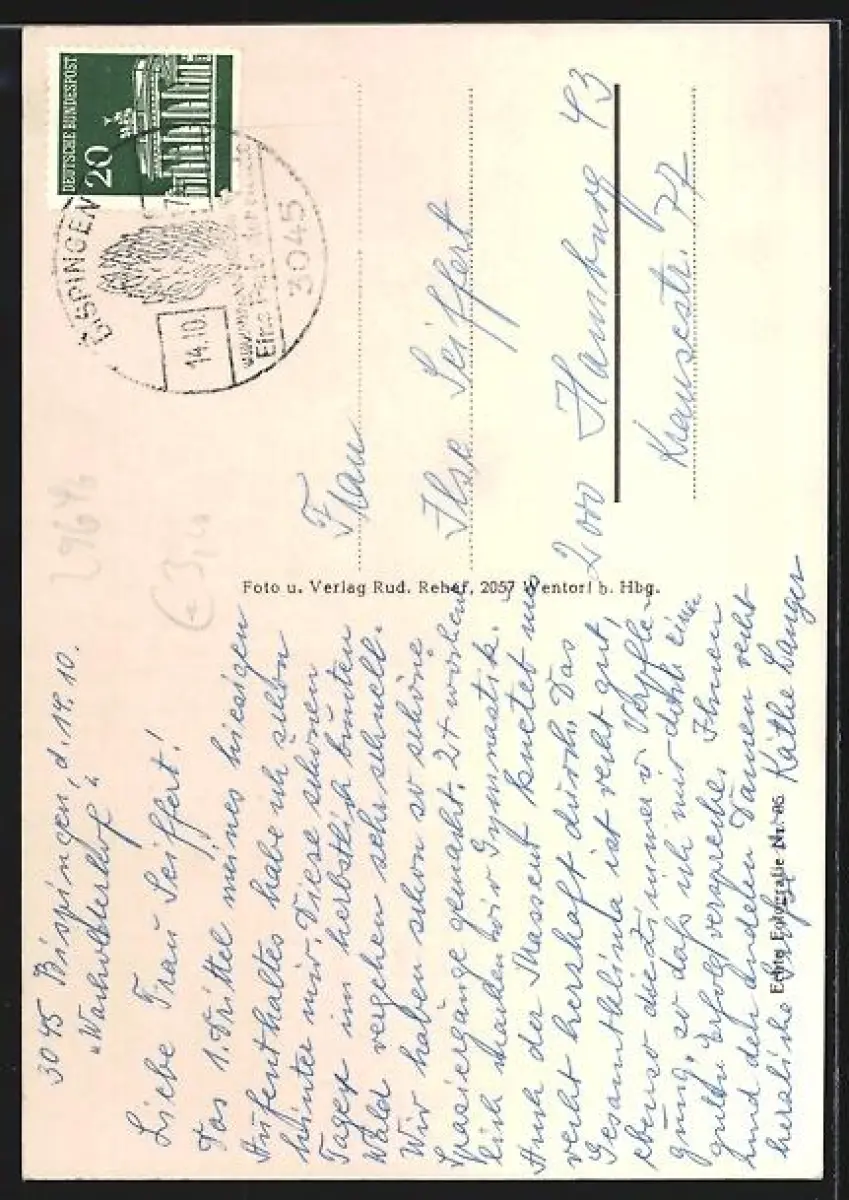 3045 Bispingen, d. 14.10.
„Wacholderhof"
Liebe Frau Seiffert!
Das 1. Drittel meines hiesigen
Aufenthaltes habe ich schon
hinter mir. Diese schönen
Tage im herbstlich bunten
Wald vergehen sehr schnell.
Wir haben schon so schöne
Spaziergänge gemacht. 2x wöchent
lich machen wir Gymnastik.
Auch der Masseur knetet uns
recht herzhaft durch. Das
Gesamtklima ist recht gut,
ebenso die Zimmer u. Verpfle-
gung, so daß ich mir doch einen
guten Erfolg verspreche. Ihnen
und den anderen Damen recht
herzliche Grüße Käthe Langer
DEUTSCHE BUNDESPOST
20
BISPINGEN
14.10.
3045
Frau
Ilse Seiffert
2000 Hamburg 43
Krausestr. 77
Foto u. Verlag Rud. Reher, 2057 Wentorf b. Hbg.
Echte Fotografie Nr. 86
€3,